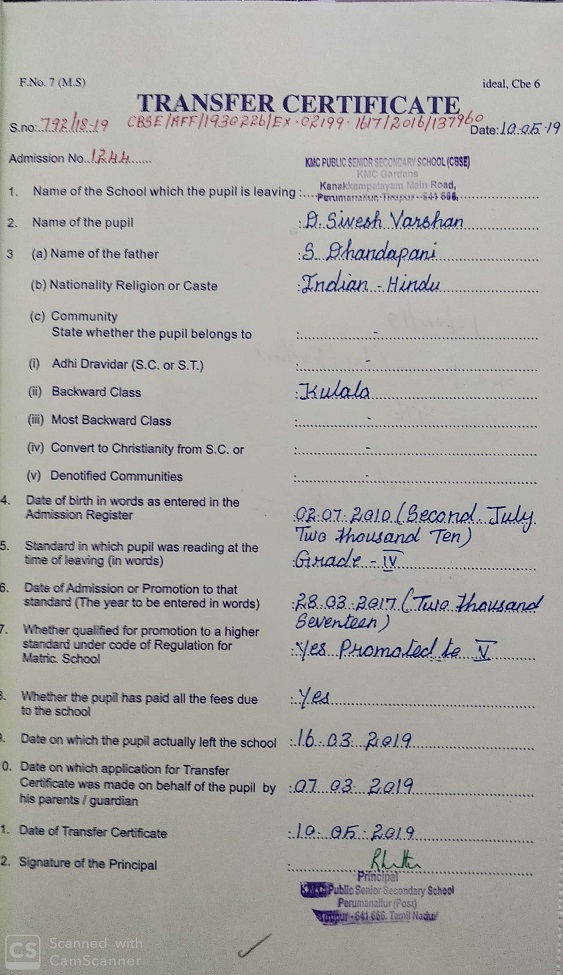 F.No. 7 (M.S)
ideal, Cbe 6
TRANSFER CERTIFICATE
S.no:. 792/18-19 CBSE/AFF/1930226/EX-02199-1617/2016/137960 Date: 10.05.19
Admission No. 1244
KMC PUBLIC SENIOR SECONDARY SCHOOL (CBSE)
KMC Gardens
Kanakkampalayam Main Road,
Perumanallur, Tirupur - 641 666.
1. Name of the School which the pupil is leaving :
2. Name of the pupil : D. Sivesh Varshan
3 (a) Name of the father : S. Dhandapani
(b) Nationality Religion or Caste : Indian - Hindu
(c) Community
State whether the pupil belongs to : -
(i) Adhi Dravidar (S.C. or S.T.) : -
(ii) Backward Class : Kulala
(iii) Most Backward Class : -
(iv) Convert to Christianity from S.C. or : -
(v) Denotified Communities : -
4. Date of birth in words as entered in the
Admission Register : 02.07.2010 (Second July
Two thousand Ten)
5. Standard in which pupil was reading at the
time of leaving (in words) : Grade - IV
6. Date of Admission or Promotion to that
standard (The year to be entered in words) : 28.03.2017 (Two thousand
Seventeen)
7. Whether qualified for promotion to a higher
standard under code of Regulation for
Matric. School : Yes Promoted to V
8. Whether the pupil has paid all the fees due
to the school : Yes
9. Date on which the pupil actually left the school : 16.03.2019
0. Date on which application for Transfer
Certificate was made on behalf of the pupil by : 07.03.2019
his parents / guardian
1. Date of Transfer Certificate : 10.05.2019
2. Signature of the Principal :
Principal
KMC Public Senior Secondary School
Perumanallur (Post)
Tirupur - 641 666. Tamil Nadu
CS Scanned with
CamScanner